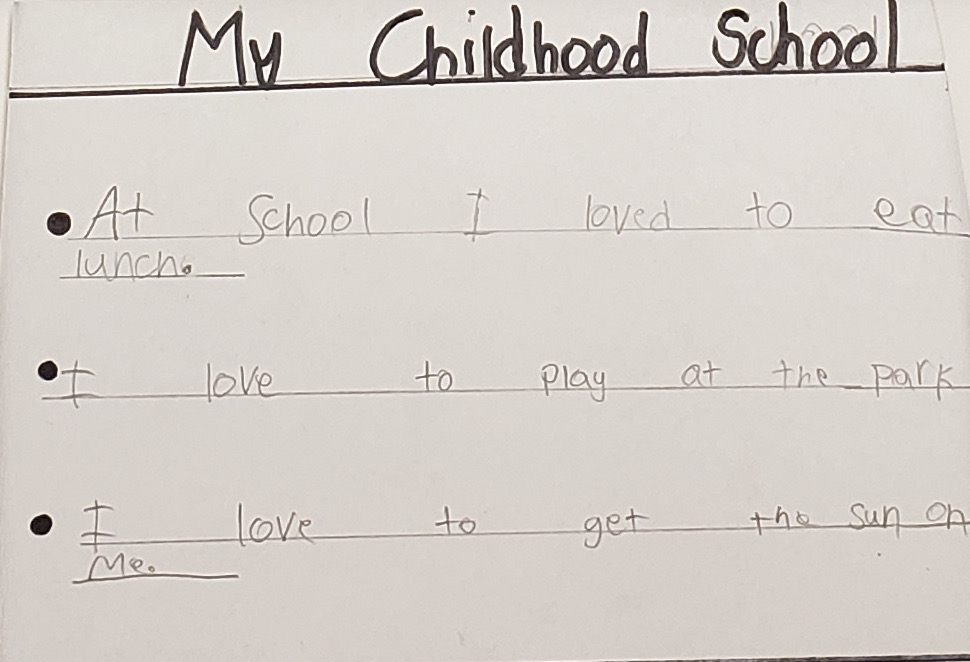 My Childhood School
• At School I loved to eat
lunch.
• I love to play at the park
• I love to get the sun on
Me.